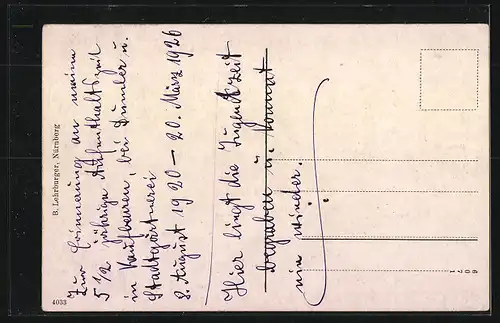 Zur Erinnerung an meine
5 1/2 jährige Aufenthaltszeit
in Kaufbeuren, bei Dumler u.
Stadtgärtnerei
8. August 1920 – 20. März 1926
Hier liegt die Jugendzeit
begraben u. kommt
nie wieder.
B. Lehrburger, Nürnberg
4033
6071